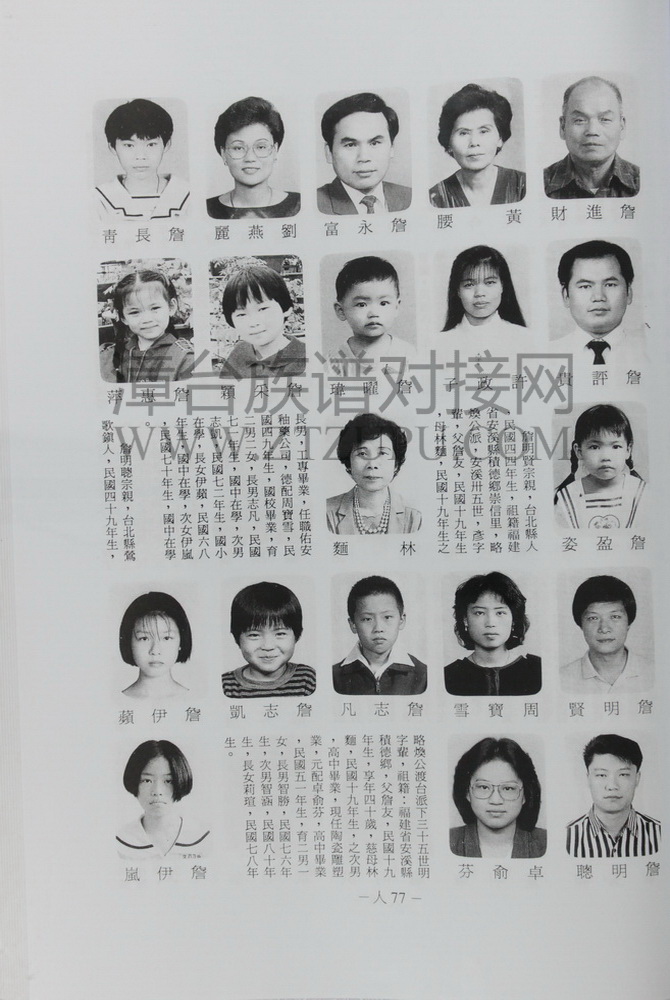 詹進財
黃　腰
詹永富
劉燕麗
詹長靑
詹評貴
許政子
詹曜瑋
詹采穎
詹惠萍
潭台族谱对接网
WWW.TTZUPU.COM
詹盈姿
詹明賢宗親，台北縣人
（民國四四年生，祖籍福建
省安溪縣積德鄉崇信里，略
煥公派，安溪卅五世，彥字
輩，父詹友，民國十九年生
，母林麵，民國十九年生之
林　麵
長男，工專畢業，任職佑安
秞藥公司，德配周寶雪，民
國四九年生，國校畢業，育
二男二女，長男志凡，民國
七一年生，國中在學，次男
志凱，民國七二年生，國小
在學，長女伊蘋，民國六八
年生，國中在學，次女伊嵐
，民國七十年生，國中在學
。
詹明聰宗親，台北縣鶯
歌鎮人，民國四十九年生，
詹明賢
周寶雪
詹志凡
詹志凱
詹伊蘋
詹明聰
卓俞芬
略煥公渡台派下三十五世明
字輩，祖籍：福建省安溪縣
積德鄉，父詹友，民國十九
年生，享年四十歲，慈母林
麵，民國十九年生，之次男
，高中畢業，現任陶瓷雕塑
業，元配卓俞芬，高中畢業
，民國五一年生，育二男一
女，長男智勝，民國七六年
生，次男智涵，民國八十年
生，長女莉瑄，民國七八年
生。
詹伊嵐
－人 77－